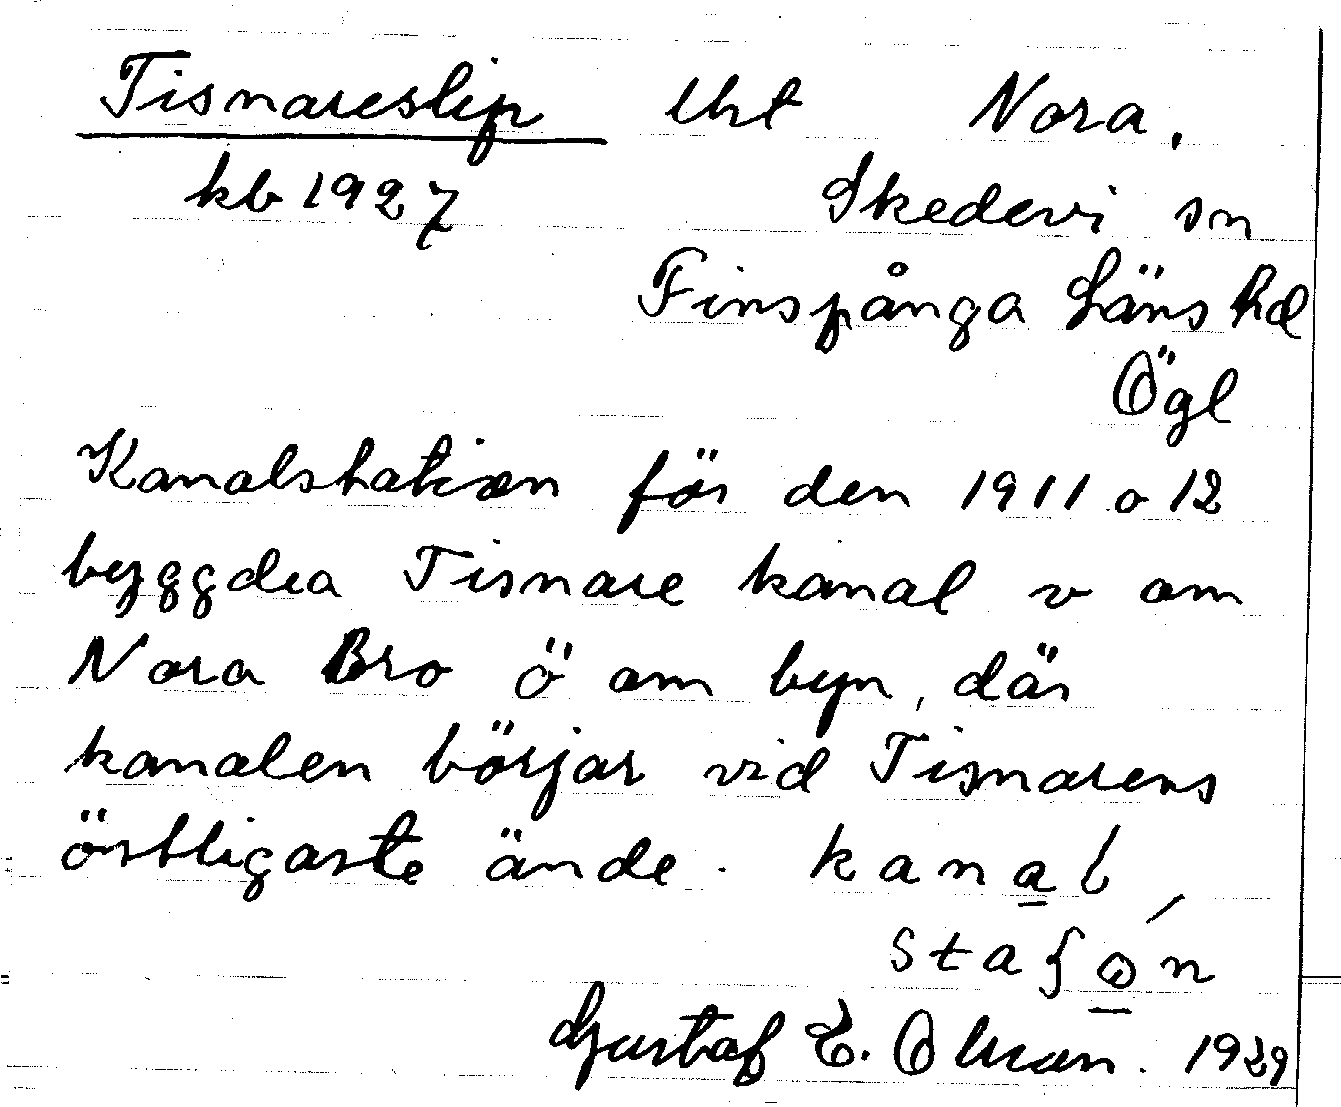 Tisnareslip lht Nora,
kb 1927 Skedevi sn
Finspånga Läns hd
Ögl
Kanalstation för den 1911 o 12
byggda Tisnare kanal v om
Nora Bro ö om byn, där
kanalen börjar vid Tisnarens
östligaste ände. kanal
staʃón
Gustaf E. Olsson. 1929